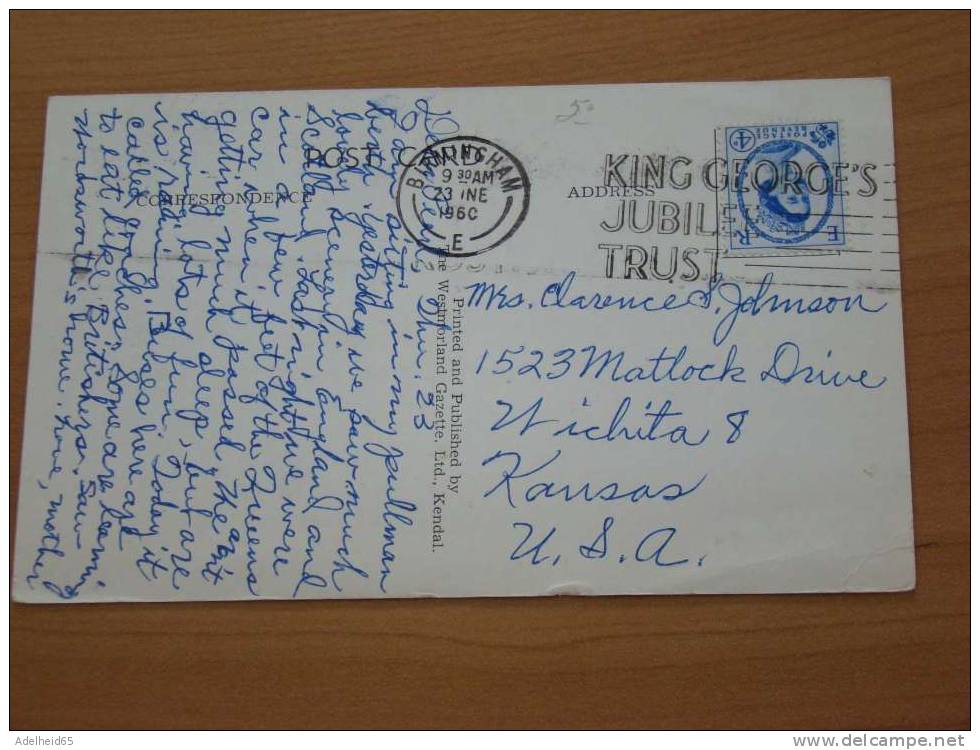 POST CARD
CORRESPONDENCE
ADDRESS
BIRMINGHAM
9 30 AM
23 JNE
1960
E
KING GEORGE'S
JUBILEE
TRUST
POSTAGE
REVENUE
4D
E R
5
Mrs. Clarence S. Johnson
1523 Matlock Drive
Wichita 8
Kansas
U. S. A.
Printed and Published by
The Westmorland Gazette, Ltd., Kendal.
23
sitting in my pullman
berth. Yesterday we saw much
lovely scenery in England and
Scotland. Last night we were
in a few feet of the Queens
car when it passed. We ain't
getting much sleep, but are
having lots of fun. Today it
is raining. Buses here are
called Coaches. Some are learning
to eat like Britishers. Saw
Wordsworth's home. Love, Mother
Adelheid65
www.delcampe.net